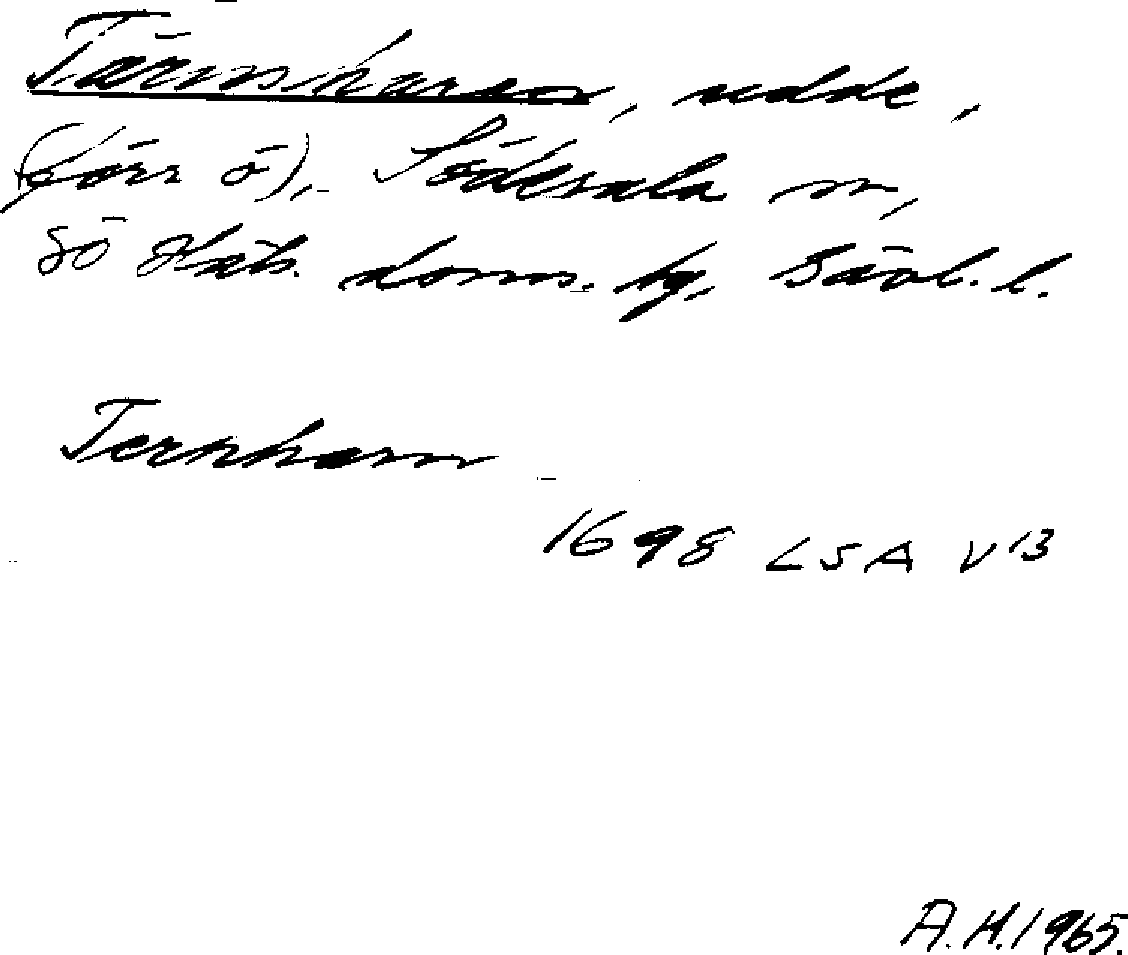 Tärnsharen, udde,
(förr ö), Söderala sn,
SÖ Häls. doms. hg, Gävl. l.
Ternharn
1698 LSA V13
A.H. 1965.